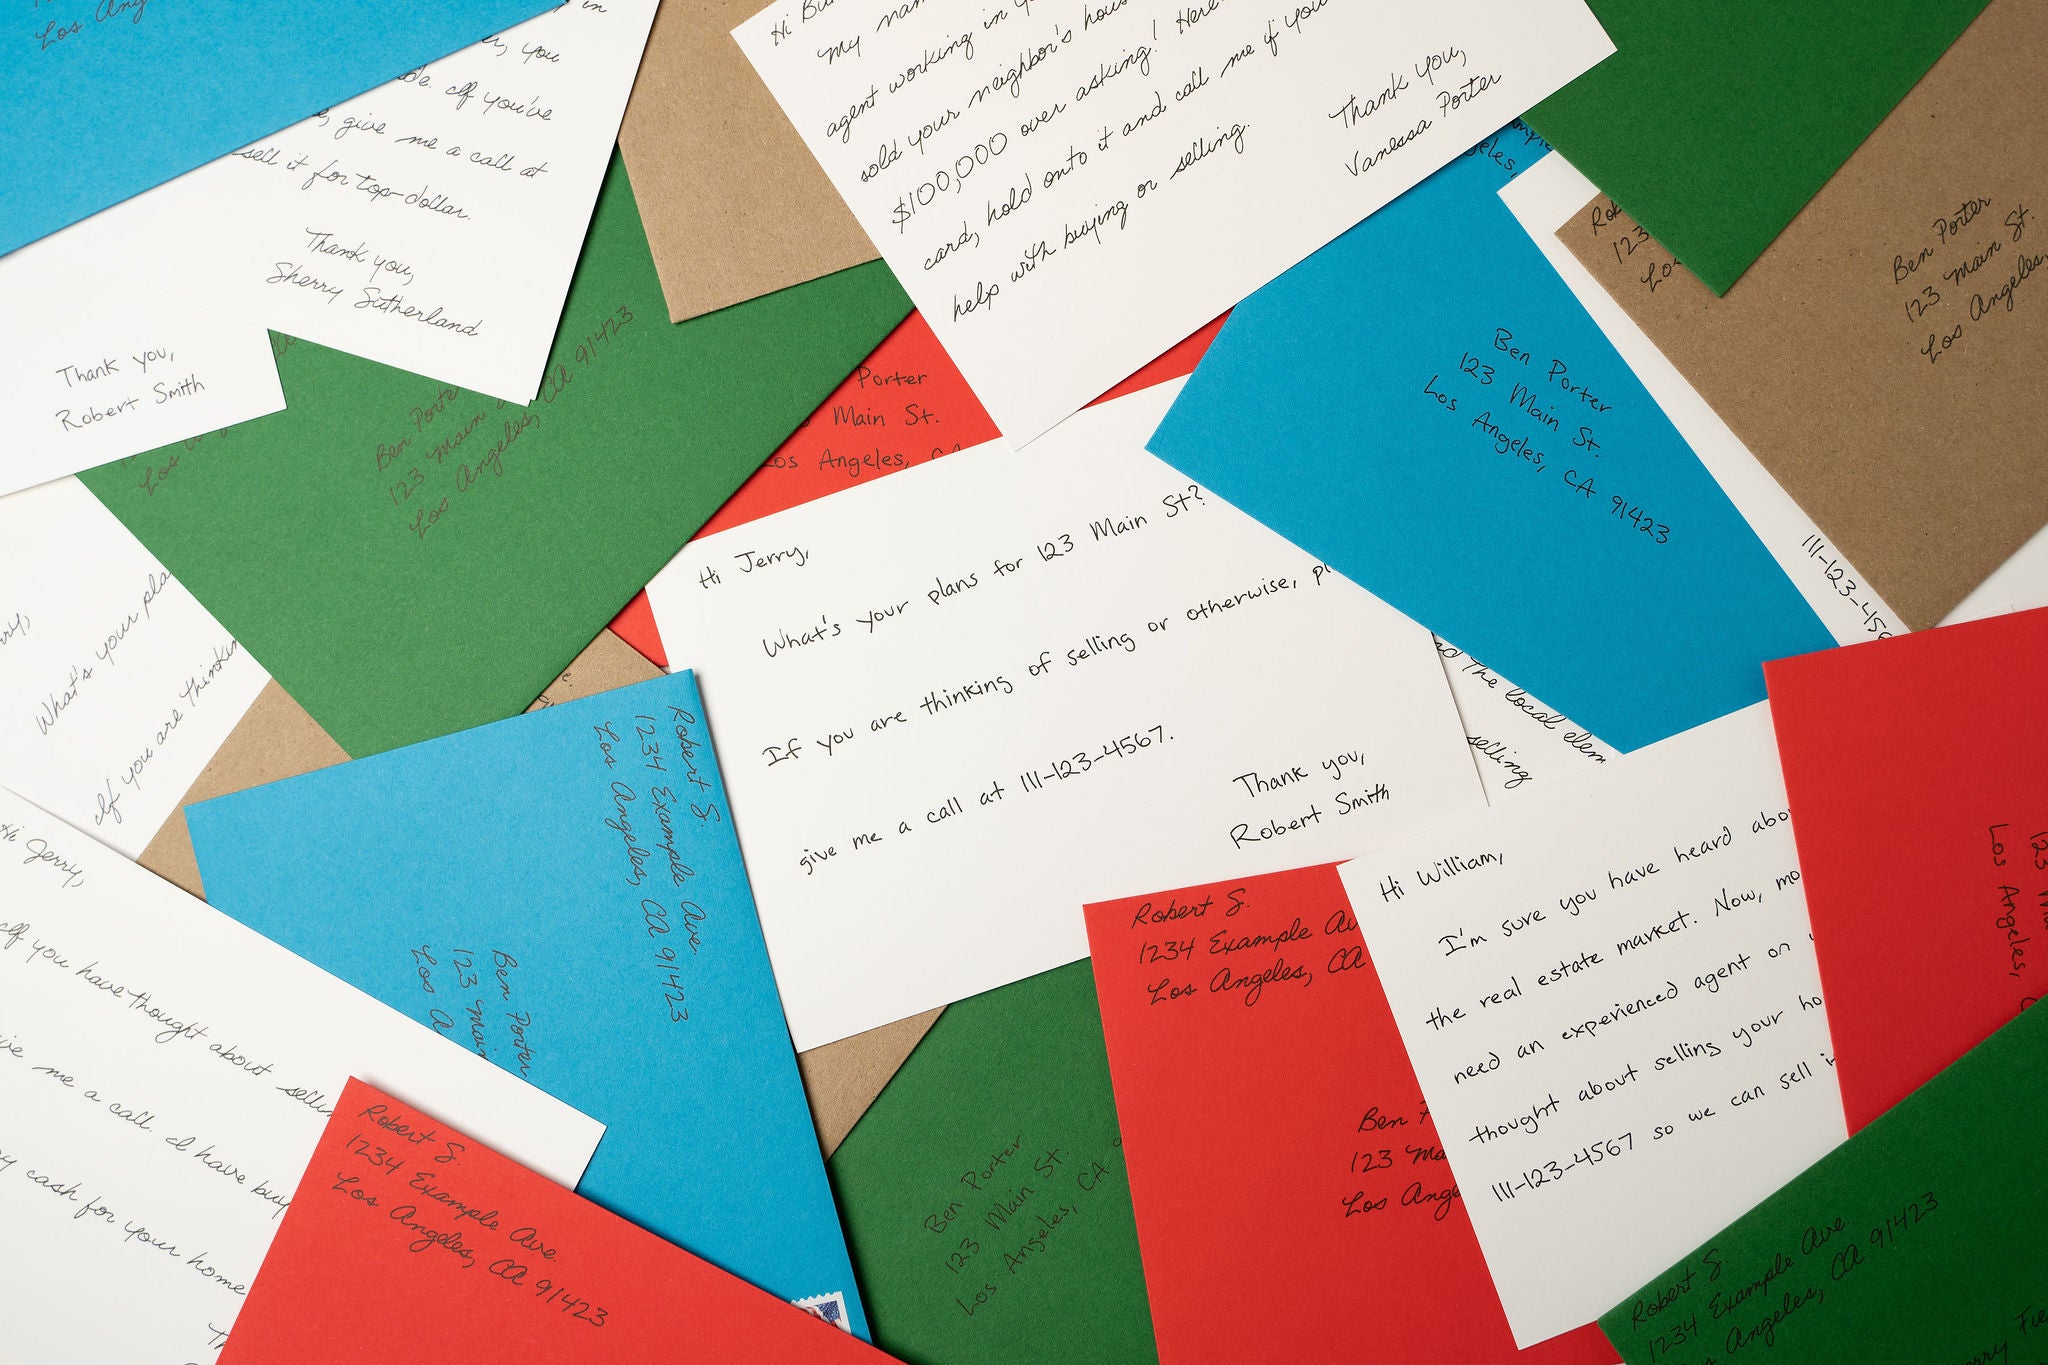 Los
in
you
If you've
give me a call at
sell it for top-dollar.
Thank you,
Sherry Sutherland
Thank you,
Robert Smith
Hi
My
agent working in
sold your neighbor's
$100,000 over asking!
card, hold onto it and call me if you
help with buying or selling.
Thank you,
Vanessa Porter
Ben Porter
123 Main St.
Los Angeles,
123
Ben Porter
123 Main St.
Los Angeles, CA 91423
111-123-456
the local
selling
Ben
123 Main
Los Angeles, CA 91423
Porter
Main St.
Los Angeles,
Hi Jerry,
What's your plans for 123 Main St?
If you are thinking of selling or otherwise,
give me a call at 111-123-4567.
Thank you,
Robert Smith
What's your
If you are
Hi Jerry,
If you have thought about
me a call. I have
cash for your home
Robert S.
1234 Example Ave.
Los Angeles, CA 91423
Ben Porter
123 Main
Los
Robert S.
1234 Example Ave.
Los Angeles, CA 91423
Ben Porter
123 Main St.
Los Angeles, CA
Robert S.
1234 Example
Los Angeles, CA
Ben
123
Los
Hi William,
I'm sure you have heard
the real estate market. Now,
need an experienced agent on
thought about selling your
111-123-4567 so we can sell
123
Los Angeles,
Robert S.
1234 Example Ave
Angeles, CA 91423